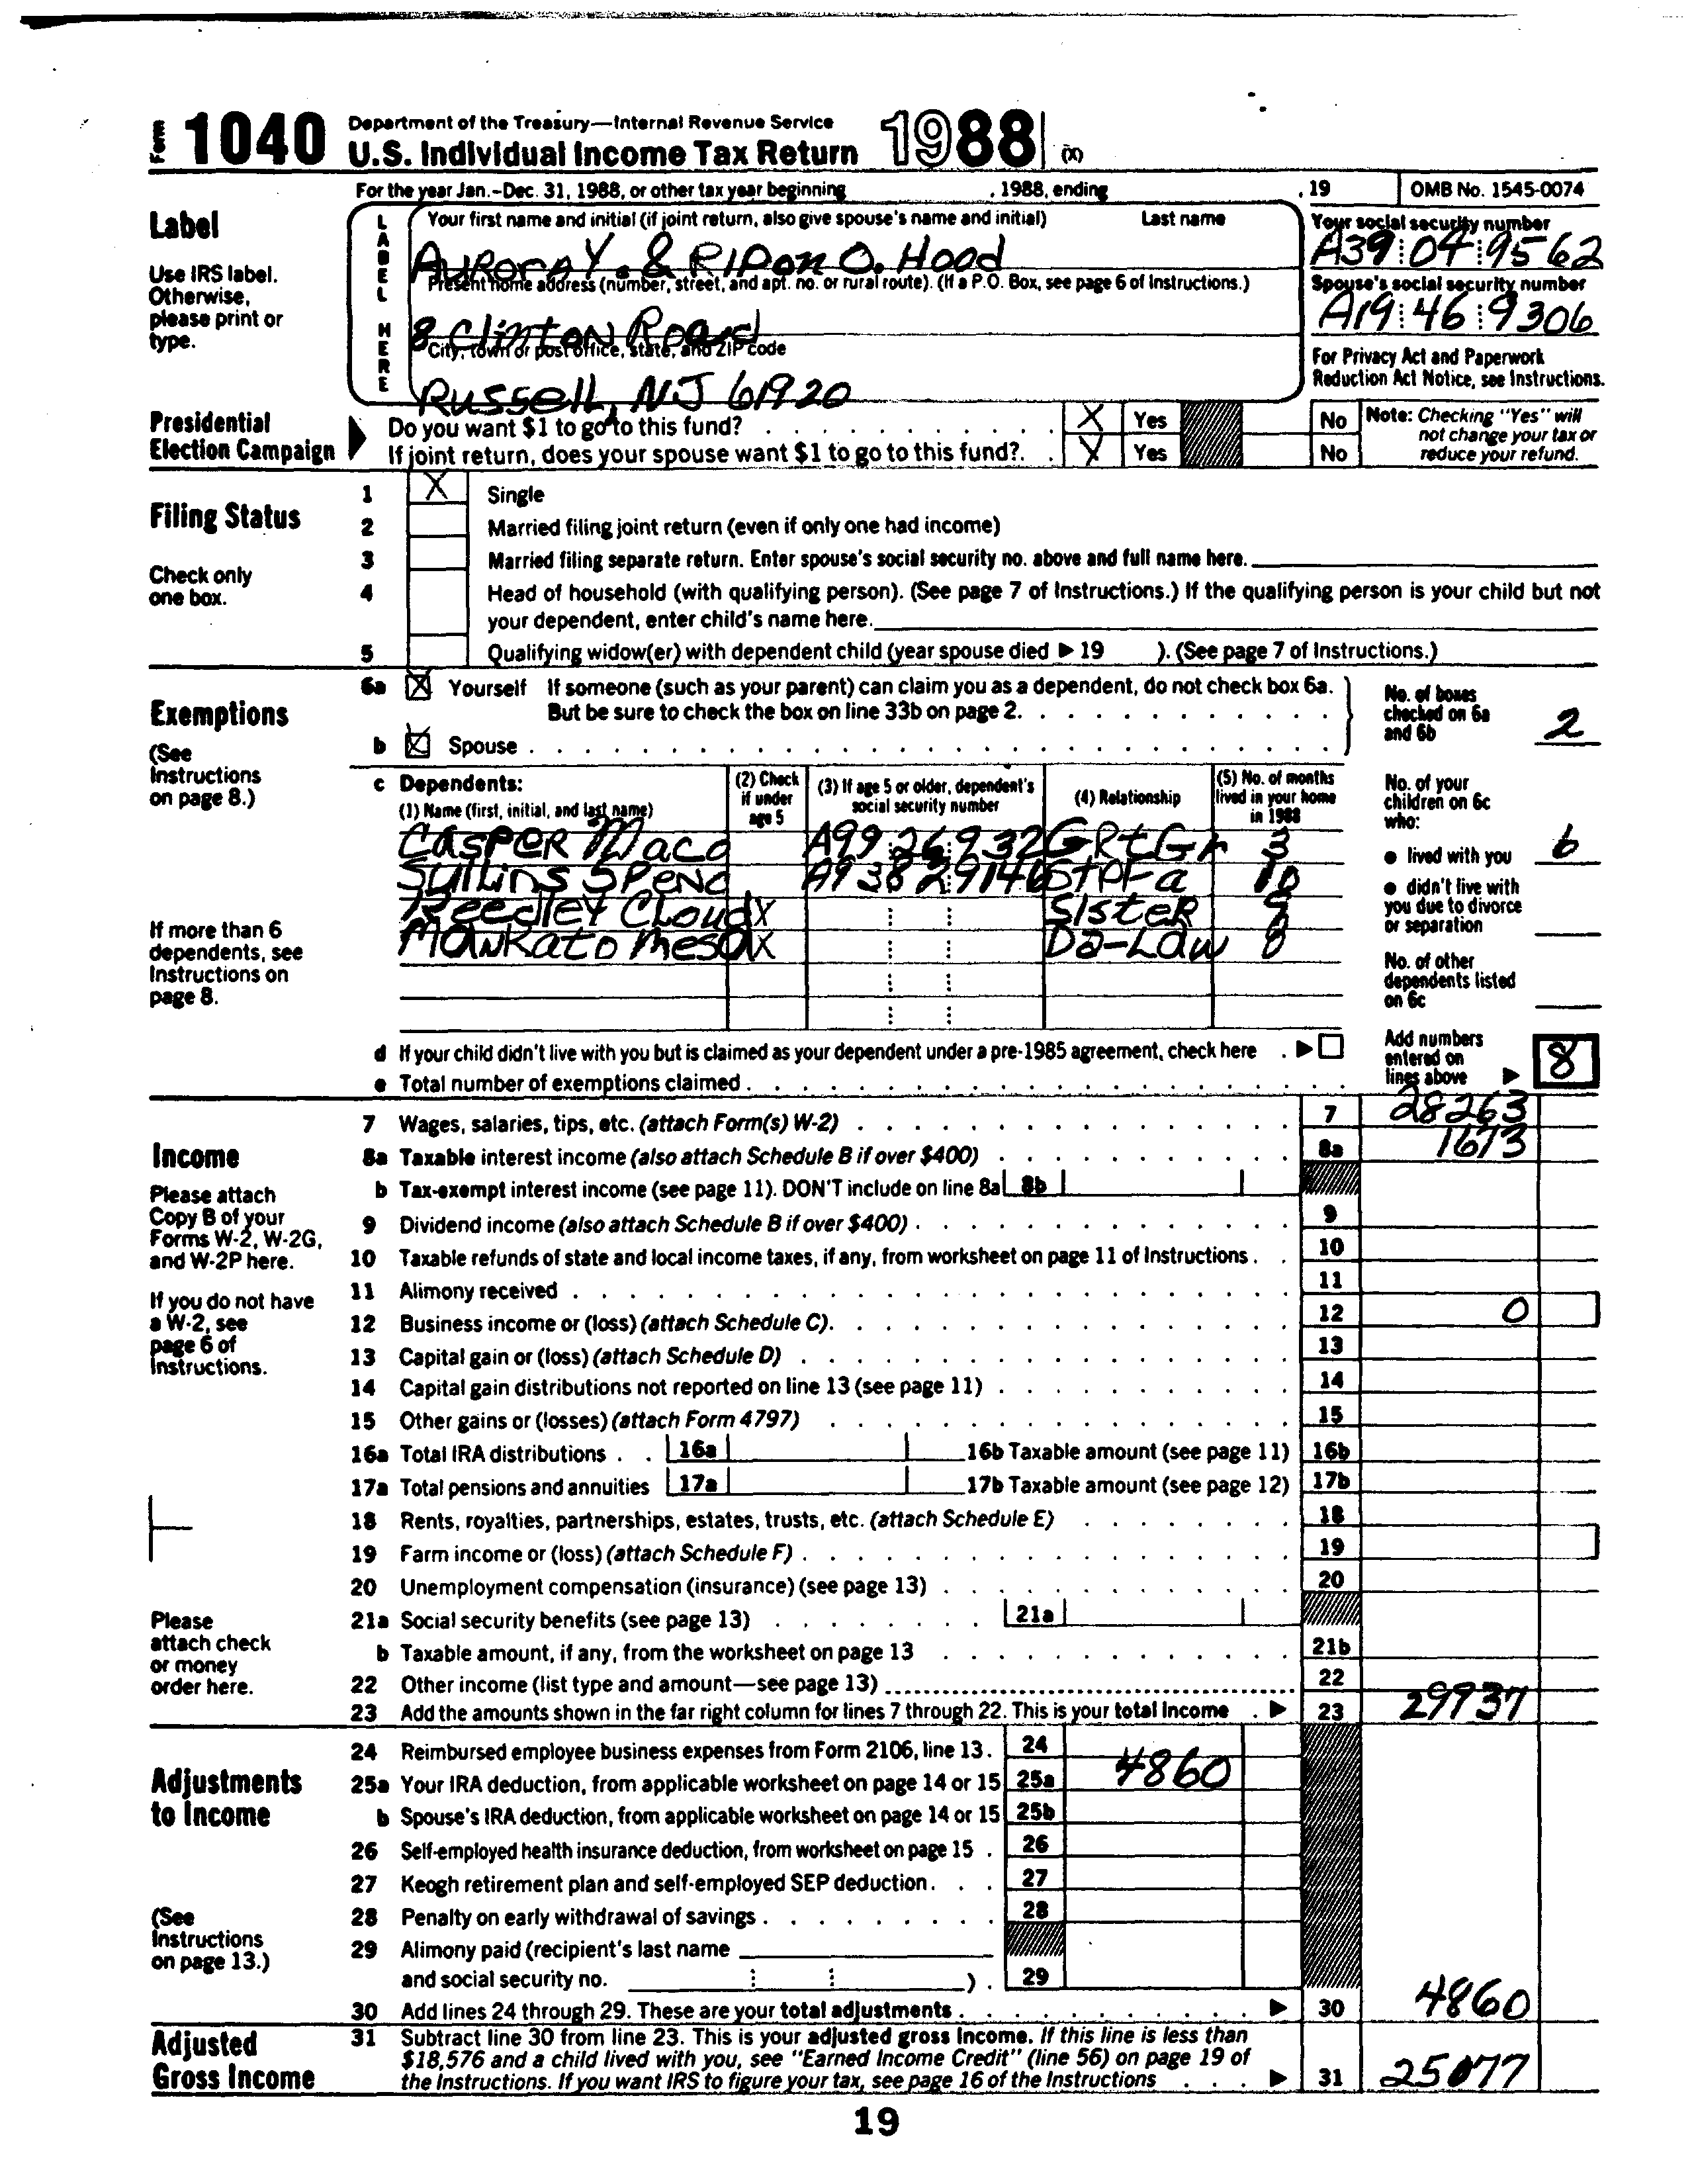 Form 1040 Department of the Treasury—Internal Revenue Service
U.S. Individual Income Tax Return 1988 (X)
For the year Jan.-Dec. 31, 1988, or other tax year beginning , 1988, ending , 19 OMB No. 1545-0074
Label
Use IRS label.
Otherwise,
please print or
type.
LABEL HERE
Your first name and initial (if joint return, also give spouse's name and initial) Last name
Aurora Y. & Ripon O. Hood
Your social security number
A39 04 9562
Present home address (number, street, and apt. no. or rural route). (If a P.O. Box, see page 6 of Instructions.)
8 Clinton Road
Spouse's social security number
A19 46 9306
City, town or post office, state, and ZIP code
Russell, NJ 61920
For Privacy Act and Paperwork
Reduction Act Notice, see Instructions.
Presidential
Election Campaign
Do you want $1 to go to this fund? X Yes No
If joint return, does your spouse want $1 to go to this fund?. X Yes No
Note: Checking "Yes" will
not change your tax or
reduce your refund.
Filing Status
Check only
one box.
1 X Single
2 Married filing joint return (even if only one had income)
3 Married filing separate return. Enter spouse's social security no. above and full name here.
4 Head of household (with qualifying person). (See page 7 of Instructions.) If the qualifying person is your child but not
your dependent, enter child's name here.
5 Qualifying widow(er) with dependent child (year spouse died ▶ 19 ). (See page 7 of Instructions.)
Exemptions
(See
Instructions
on page 8.)
If more than 6
dependents, see
Instructions on
page 8.
6a X Yourself If someone (such as your parent) can claim you as a dependent, do not check box 6a.
But be sure to check the box on line 33b on page 2.
b X Spouse
No. of boxes
checked on 6a
and 6b 2
c Dependents:
(1) Name (first, initial, and last name)
(2) Check
if under
age 5
(3) If age 5 or older, dependent's
social security number
(4) Relationship
(5) No. of months
lived in your home
in 1988
Casper Maco A99 26 932 GRtGr 3
Sullins Spend A93 82 9146 StPFa 10
Reedley Cloud X Sister
Mankato Mesa X Da-Law 8
No. of your
children on 6c
who:
● lived with you 6
● didn't live with
you due to divorce
or separation
No. of other
dependents listed
on 6c
d If your child didn't live with you but is claimed as your dependent under a pre-1985 agreement, check here ▶
e Total number of exemptions claimed
Add numbers
entered on
lines above ▶ 8
Income
Please attach
Copy B of your
Forms W-2, W-2G,
and W-2P here.
If you do not have
a W-2, see
page 6 of
Instructions.
Please
attach check
or money
order here.
7 Wages, salaries, tips, etc. (attach Form(s) W-2) 7 28263
8a Taxable interest income (also attach Schedule B if over $400) 8a 1673
b Tax-exempt interest income (see page 11). DON'T include on line 8a 8b
9 Dividend income (also attach Schedule B if over $400) 9
10 Taxable refunds of state and local income taxes, if any, from worksheet on page 11 of Instructions 10
11 Alimony received 11
12 Business income or (loss) (attach Schedule C). 12 0
13 Capital gain or (loss) (attach Schedule D) 13
14 Capital gain distributions not reported on line 13 (see page 11) 14
15 Other gains or (losses) (attach Form 4797) 15
16a Total IRA distributions 16a 16b Taxable amount (see page 11) 16b
17a Total pensions and annuities 17a 17b Taxable amount (see page 12) 17b
18 Rents, royalties, partnerships, estates, trusts, etc. (attach Schedule E) 18
19 Farm income or (loss) (attach Schedule F) 19
20 Unemployment compensation (insurance) (see page 13) 20
21a Social security benefits (see page 13) 21a
b Taxable amount, if any, from the worksheet on page 13 21b
22 Other income (list type and amount—see page 13) 22
23 Add the amounts shown in the far right column for lines 7 through 22. This is your total income ▶ 23 29937
Adjustments
to Income
(See
Instructions
on page 13.)
24 Reimbursed employee business expenses from Form 2106, line 13. 24
25a Your IRA deduction, from applicable worksheet on page 14 or 15 25a 4860
b Spouse's IRA deduction, from applicable worksheet on page 14 or 15 25b
26 Self-employed health insurance deduction, from worksheet on page 15 26
27 Keogh retirement plan and self-employed SEP deduction 27
28 Penalty on early withdrawal of savings 28
29 Alimony paid (recipient's last name
and social security no. ) 29
30 Add lines 24 through 29. These are your total adjustments ▶ 30 4860
Adjusted
Gross Income
31 Subtract line 30 from line 23. This is your adjusted gross income. If this line is less than
$18,576 and a child lived with you, see "Earned Income Credit" (line 56) on page 19 of
the Instructions. If you want IRS to figure your tax, see page 16 of the Instructions ▶ 31 25077
19